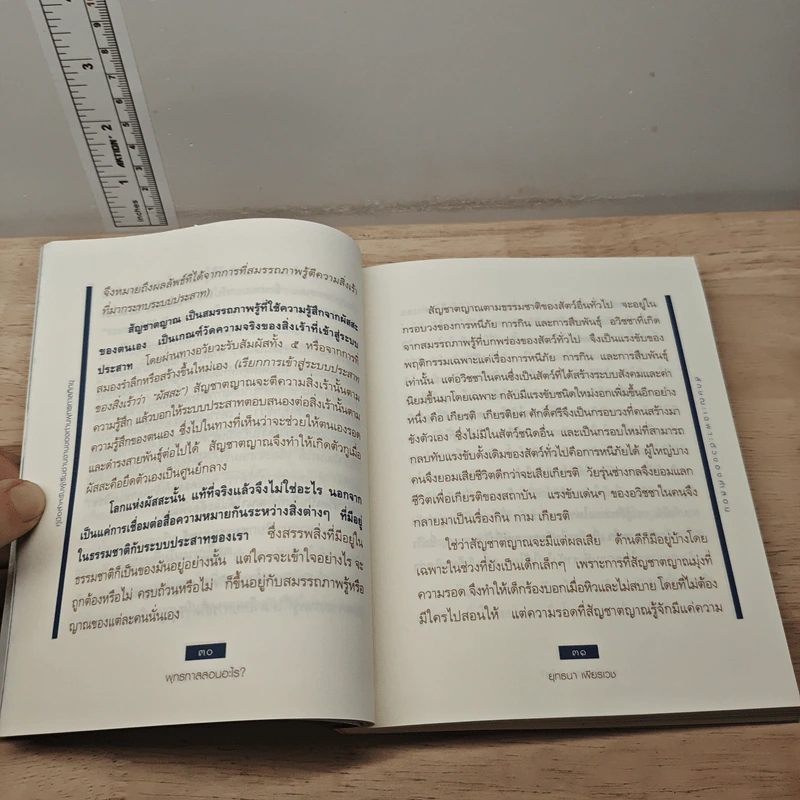 จึงหมายถึงผลลัพธ์ที่ได้จากการที่สมรรถภาพรู้ตีความสิ่งเร้า
ที่มากระทบระบบประสาท)
สัญชาตญาณ เป็นสมรรถภาพรู้ที่ใช้ความรู้สึกจากผัสสะ
ของตนเอง เป็นเกณฑ์วัดความจริงของสิ่งเร้าที่เข้าสู่ระบบ
ประสาท โดยผ่านทางอวัยวะรับสัมผัสทั้ง ๕ หรือจากการที่
สมองรำลึกหรือสร้างขึ้นใหม่เอง (เรียกการเข้าสู่ระบบประสาท
ของสิ่งเร้าว่า "ผัสสะ") สัญชาตญาณจะตีความสิ่งเร้านั้นตาม
ความรู้สึก แล้วบอกให้ระบบประสาทตอบสนองต่อสิ่งเร้านั้นตาม
ความรู้สึกของตนเอง ซึ่งไปในทางที่เห็นว่าจะช่วยให้ตนเองรอด
และดำรงสายพันธุ์ต่อไปได้ สัญชาตญาณจึงทำให้เกิดตัวกูเมื่อ
ผัสสะคือยึดตัวเองเป็นศูนย์กลาง
โลกแห่งผัสสะนั้น แท้ที่จริงแล้วจึงไม่ใช่อะไร นอกจาก
เป็นแค่การเชื่อมต่อสื่อความหมายกันระหว่างสิ่งต่างๆ ที่มีอยู่
ในธรรมชาติกับระบบประสาทของเรา ซึ่งสรรพสิ่งที่มีอยู่ใน
ธรรมชาติก็เป็นของมันอยู่อย่างนั้น แต่ใครจะเข้าใจอย่างไร จะ
ถูกต้องหรือไม่ ครบถ้วนหรือไม่ ก็ขึ้นอยู่กับสมรรถภาพรู้หรือ
ญาณของแต่ละคนนั่นเอง
๓๐
พุทธทาสสอนอะไร?
สัญชาตญาณตามธรรมชาติของสัตว์อื่นทั่วไป จะอยู่ใน
กรอบวงของการหนีภัย การกิน และการสืบพันธุ์ อวิชชาที่เกิด
จากสมรรถภาพรู้ที่บกพร่องของสัตว์ทั่วไป จึงเป็นแรงขับของ
พฤติกรรมเฉพาะแค่เรื่องการหนีภัย การกิน และการสืบพันธุ์
เท่านั้น แต่อวิชชาในคนซึ่งเป็นสัตว์ที่ได้สร้างระบบสังคมและค่า
นิยมขึ้นมาโดยเฉพาะ กลับมีแรงขับชนิดใหม่งอกเพิ่มขึ้นอีกอย่าง
หนึ่ง คือ เกียรติ เกียรติยศ ศักดิ์ศรีจึงเป็นกรอบวงที่คนสร้างมา
ขังตัวเอง ซึ่งไม่มีในสัตว์ชนิดอื่น และเป็นกรอบใหม่ที่สามารถ
กลบทับแรงขับดั้งเดิมของสัตว์ทั่วไปคือการหนีภัยได้ ผู้ใหญ่บาง
คนจึงยอมเสียชีวิตดีกว่าจะเสียเกียรติ วัยรุ่นช่างกลจึงยอมแลก
ชีวิตเพื่อเกียรติของสถาบัน แรงขับเด่นๆ ของอวิชชาในคนจึง
กลายมาเป็นเรื่องกิน กาม เกียรติ
ใช่ว่าสัญชาตญาณจะมีแต่ผลเสีย ด้านดีก็มีอยู่บ้างโดย
เฉพาะในช่วงที่ยังเป็นเด็กเล็กๆ เพราะการที่สัญชาตญาณมุ่งที่
ความรอด จึงทำให้เด็กร้องบอกเมื่อหิวและไม่สบาย โดยที่ไม่ต้อง
มีใครไปสอนให้ แต่ความรอดที่สัญชาตญาณรู้จักมีแค่ความ
๓๑
ยุทธนา เพียรเวช
inches
1
AKTION
2
3